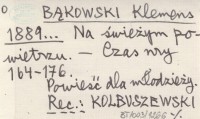 0 BĄKOWSKI Klemens
1889... Na świeżym po-
wietrzu. — Czas nry
164-176.
Powieść dla młodzieży.
Rec.: KOLBUSZEWSKI